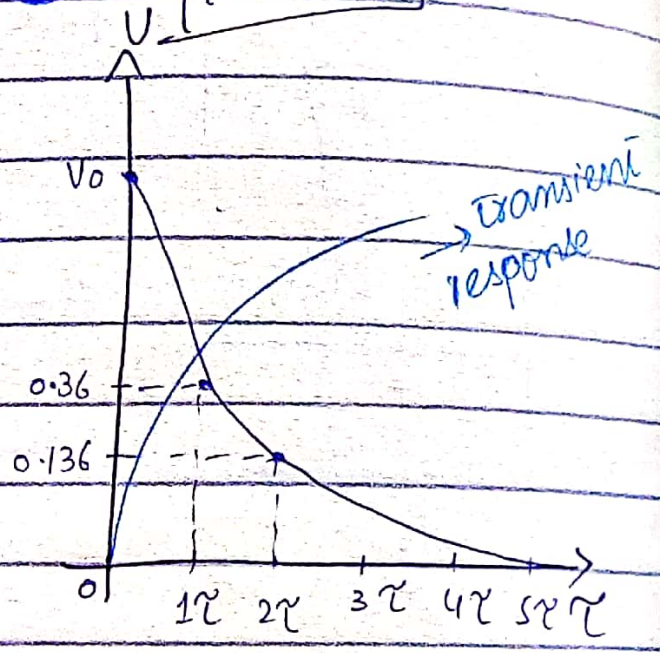 U
V0
transient
response
0.36
0.136
0
1τ 2τ 3τ 4τ 5τ τ